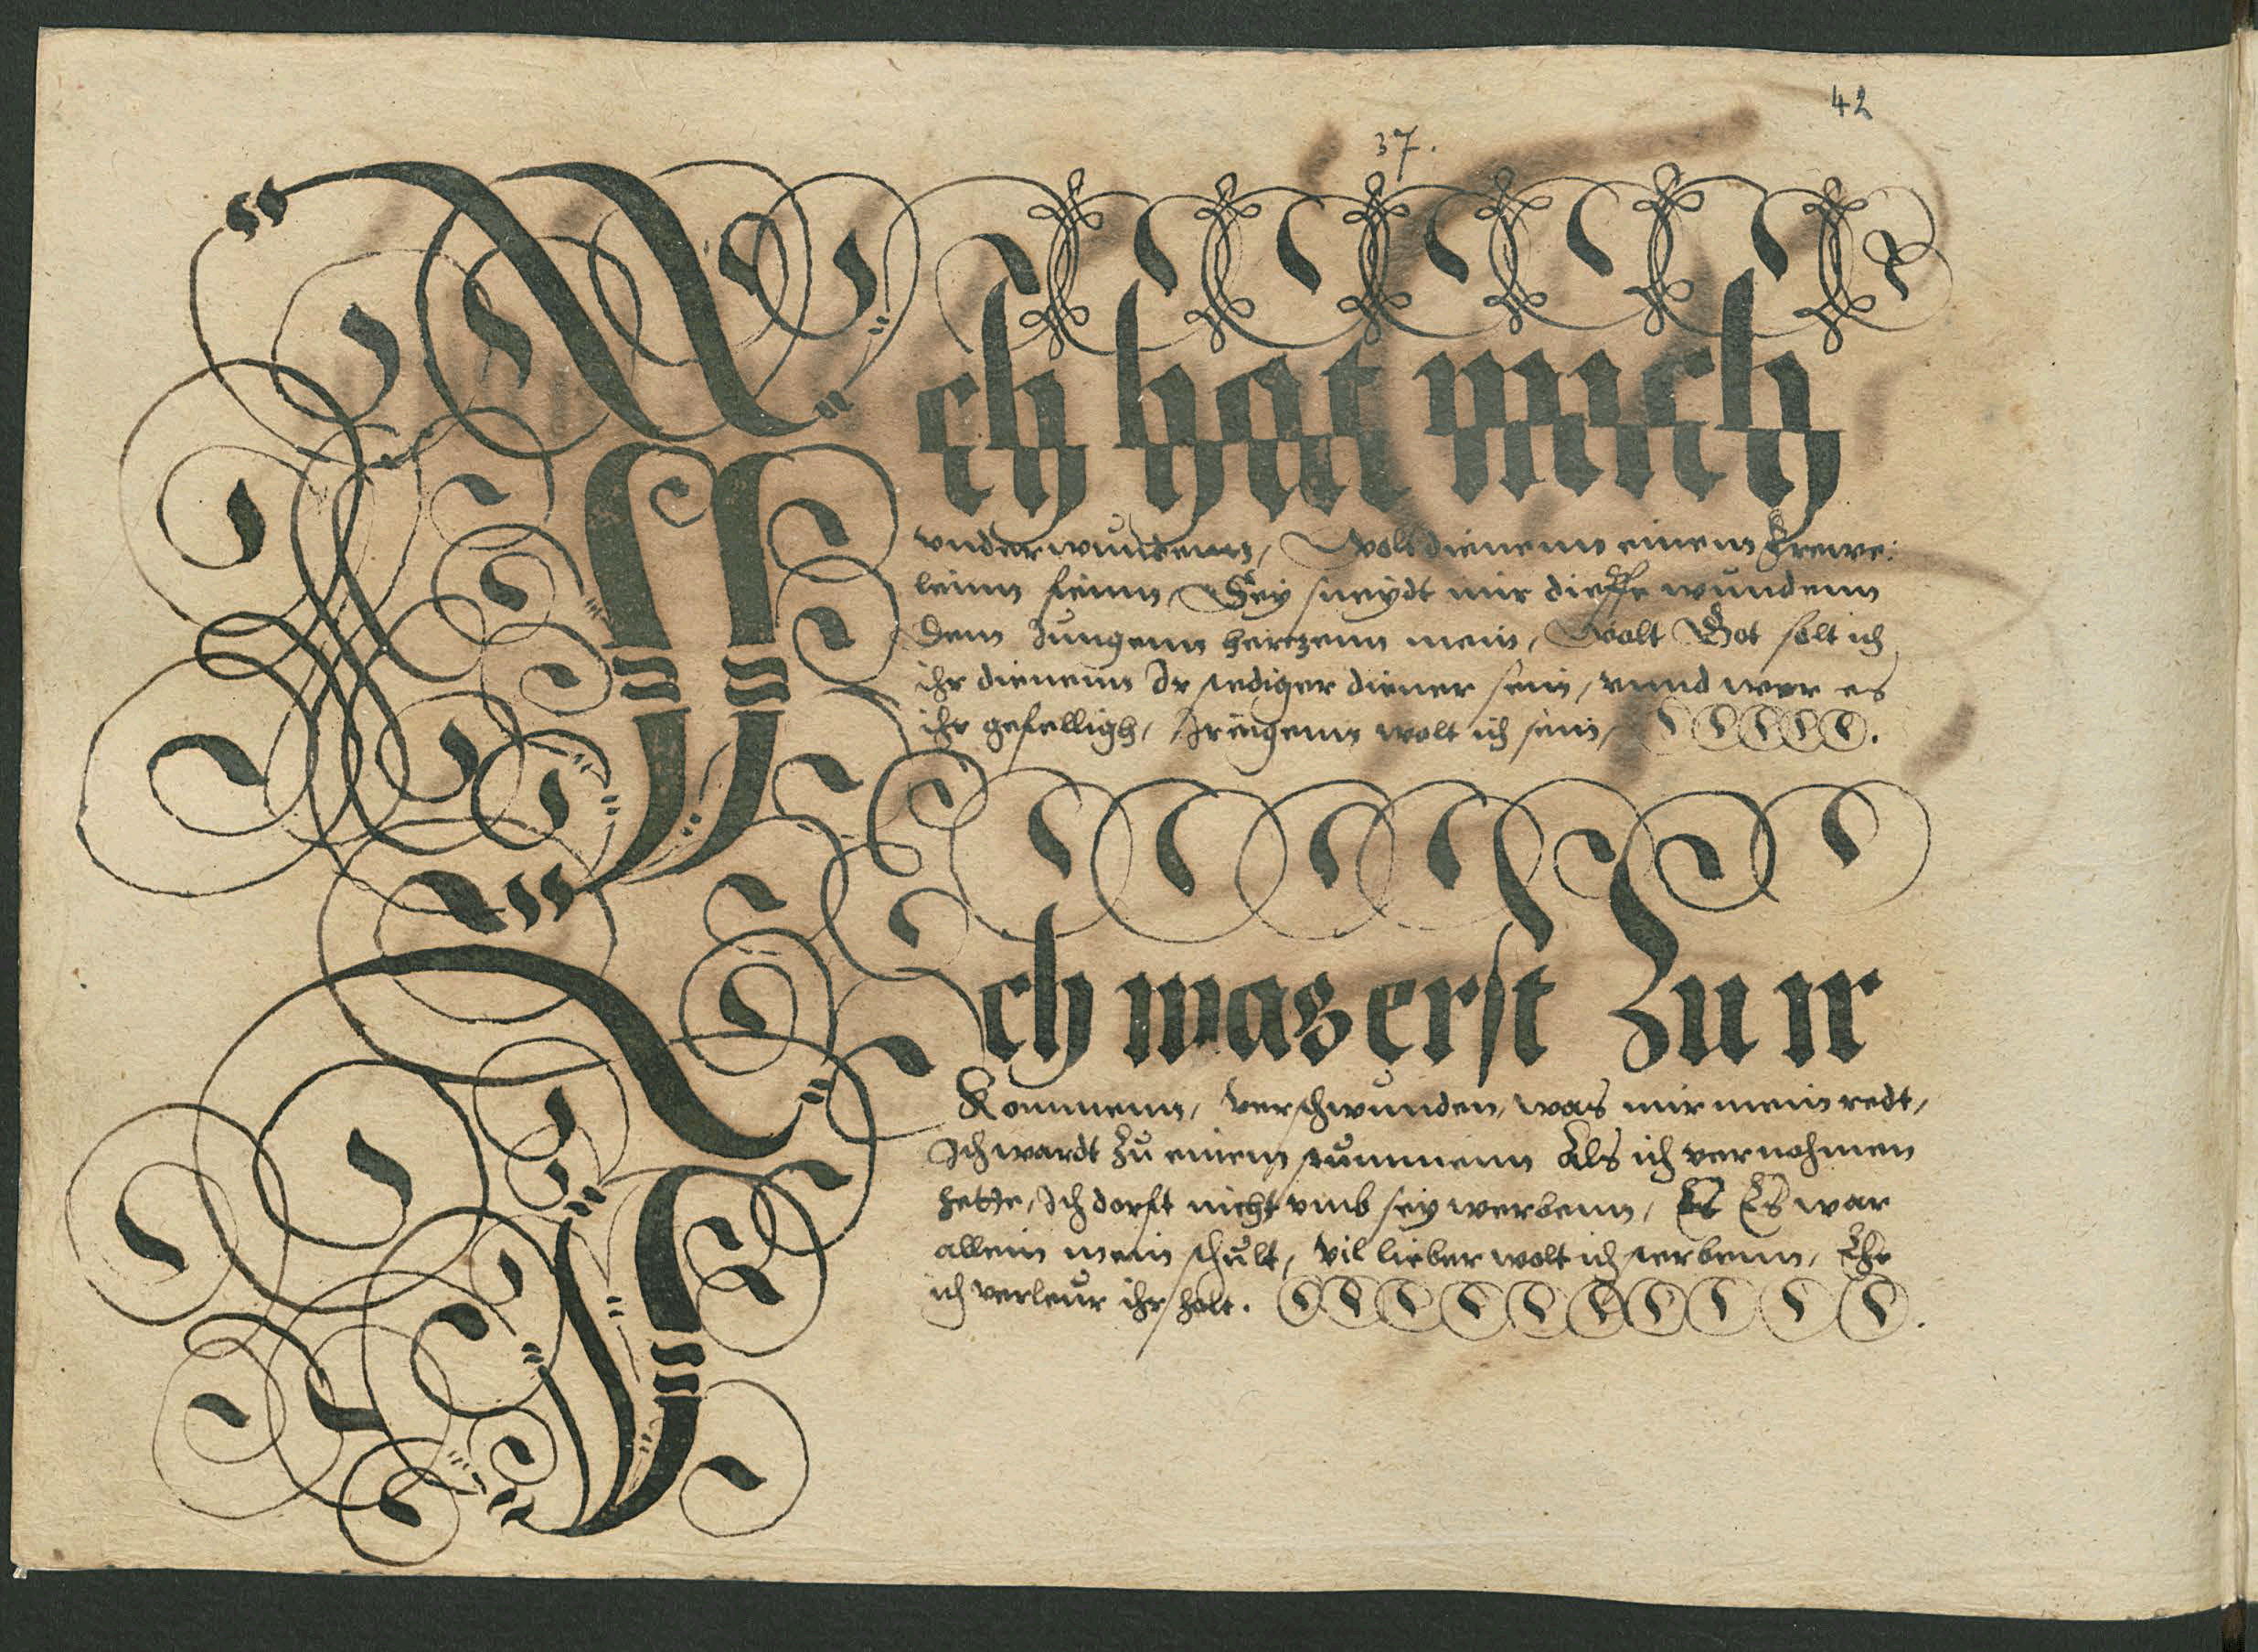 42
37.
Ich hat mich
vnderwundenn, Wolt dienenn einem Frewe:
leinn feinn, Sey sneydt mir dieffe wundenn
Dem Jungenn hertzenn mein, Wolt Got solt ich
ihr dienenn Ir stediger diener sein, vnnd wer es
ihr gefelligh, Ir eigenn wolt ich sein,
Ich was erst Zu ir
Kommenn, verschwunden, was mir mein redt,
Ich wardt Zu einem stummenn Als ich vernohmen
hette, Ich dorft nicht vmb sey werbenn, Es Es war
allein mein schult, vil lieber wolt ich sterbenn, Ehe
ich verleur ihr holt.